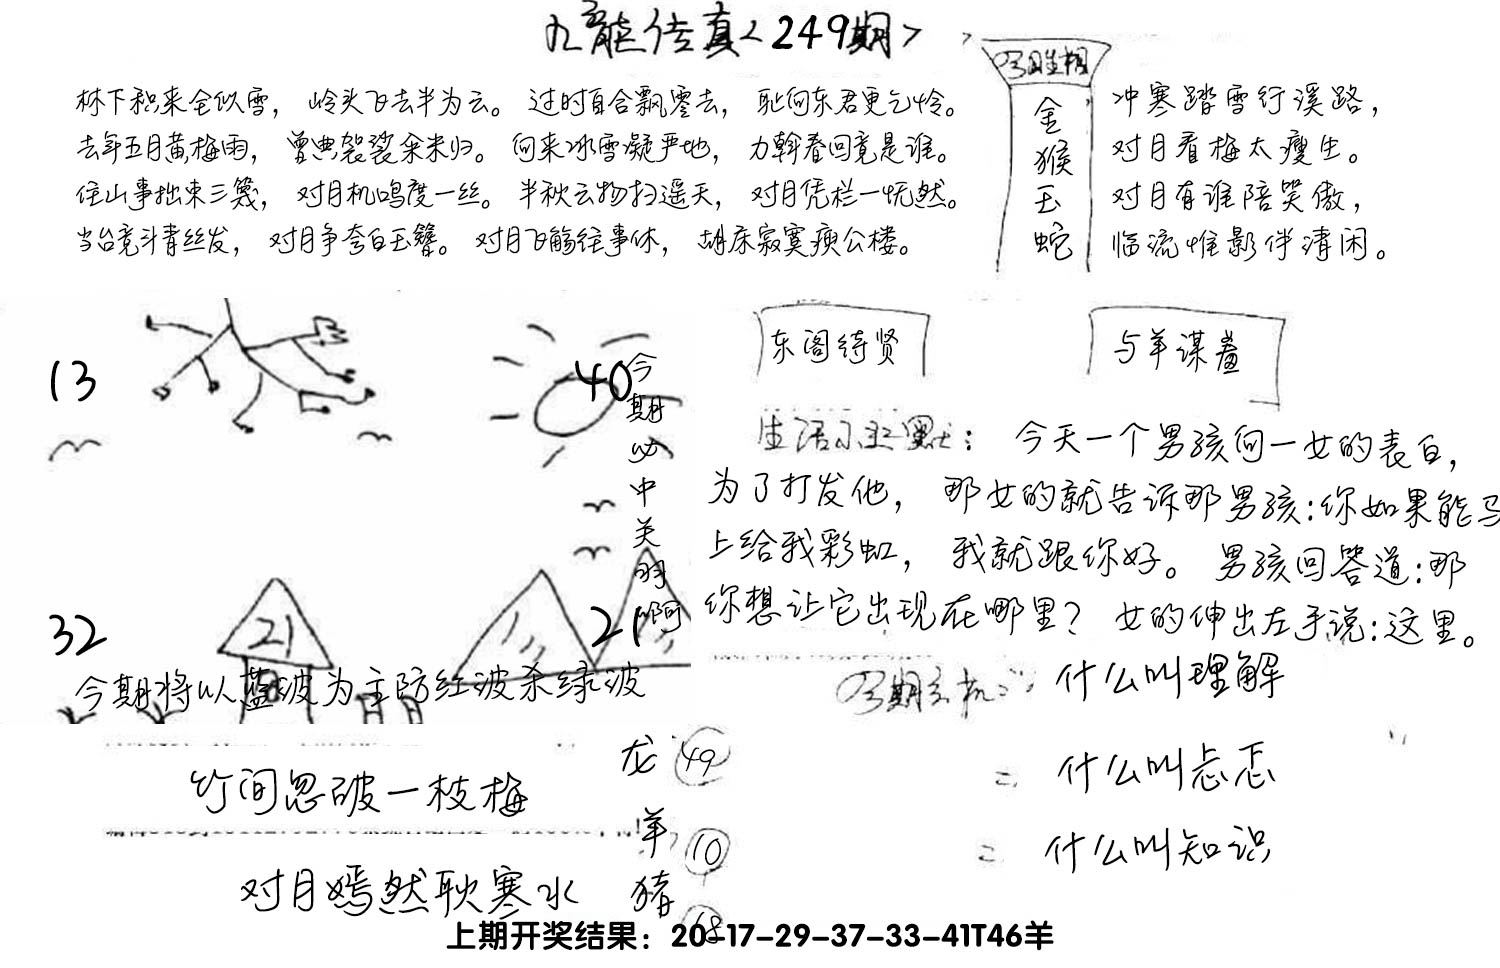 九龙传真<249期>
林下积来全似雪，岭头飞去半为云。过时自合飘零去，耻向东君更乞怜。
去年五月黄梅雨，曾典袈裟籴米归。向来冰雪凝严地，力斡春回竟是谁。
住山事拙束三篾，对月机鸣度一丝。半秋云物扫遥天，对月凭栏一怃然。
当台竞斗青丝发，对月争夸白玉簪。对月飞觞往事休，胡床寂寞庾公楼。
金
猴
玉
蛇
冲寒踏雪行溪路，
对月看梅太瘦生。
对月有谁陪笑傲，
临流惟影伴清闲。
13
40
32
21
21
今期必中关羽啊
今期将以蓝波为主防红波杀绿波
东阁待贤
与羊谋羞
生活小幽默：今天一个男孩向一女的表白，
为了打发他，那女的就告诉那男孩：你如果能马
上给我彩虹，我就跟你好。男孩回答道：那
你想让它出现在哪里？女的伸出左手说：这里。
今期玄机：什么叫理解
二 什么叫忐忑
二 什么叫知识
竹间忽破一枝梅
对月嫣然耿寒水
龙 49
羊 10
猪 18
上期开奖结果：20-17-29-37-33-41T46羊